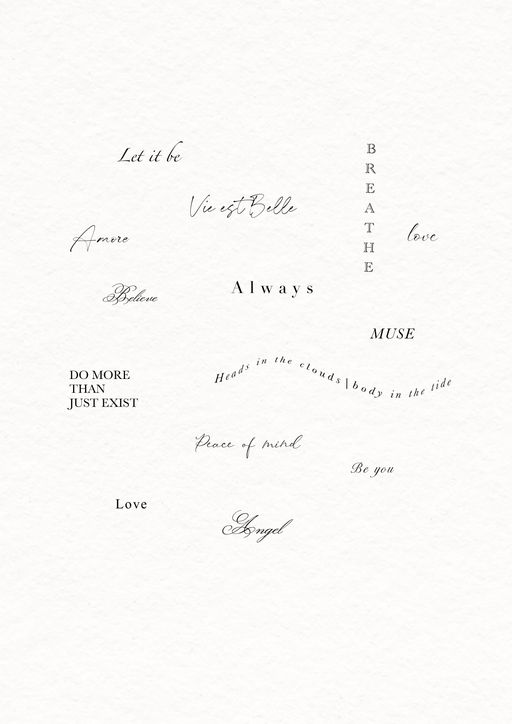 Let it be
BREATHE
Vie est Belle
Amore
love
Believe
Always
MUSE
Heads in the clouds | body in the tide
DO MORE
THAN
JUST EXIST
Peace of mind
Be you
Love
Angel